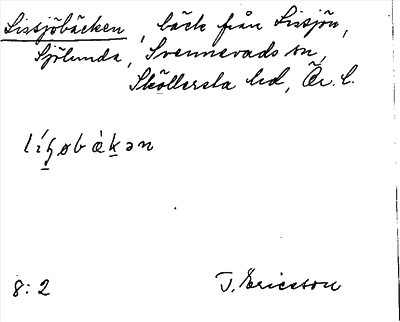 Lissjöbäcken, bäck från Lissjön,
Sjölunda, Svennevads sn,
Sköllersta hd, Ör. l.
8:2 J. Ericsson